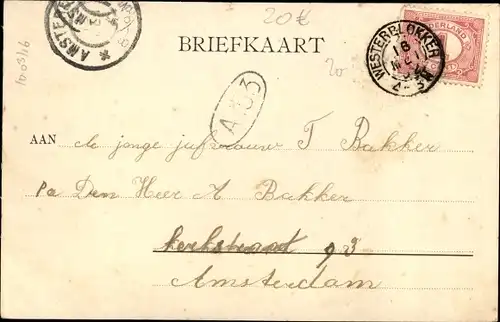 20€
BRIEFKAART
AMST
WESTERBLOKKER
NEDERLAND
20
A 33
AAN de jonge jufvrouw T Bakker
pa Den Heer A Bakker
Kerkstraat 93
Amsterdam